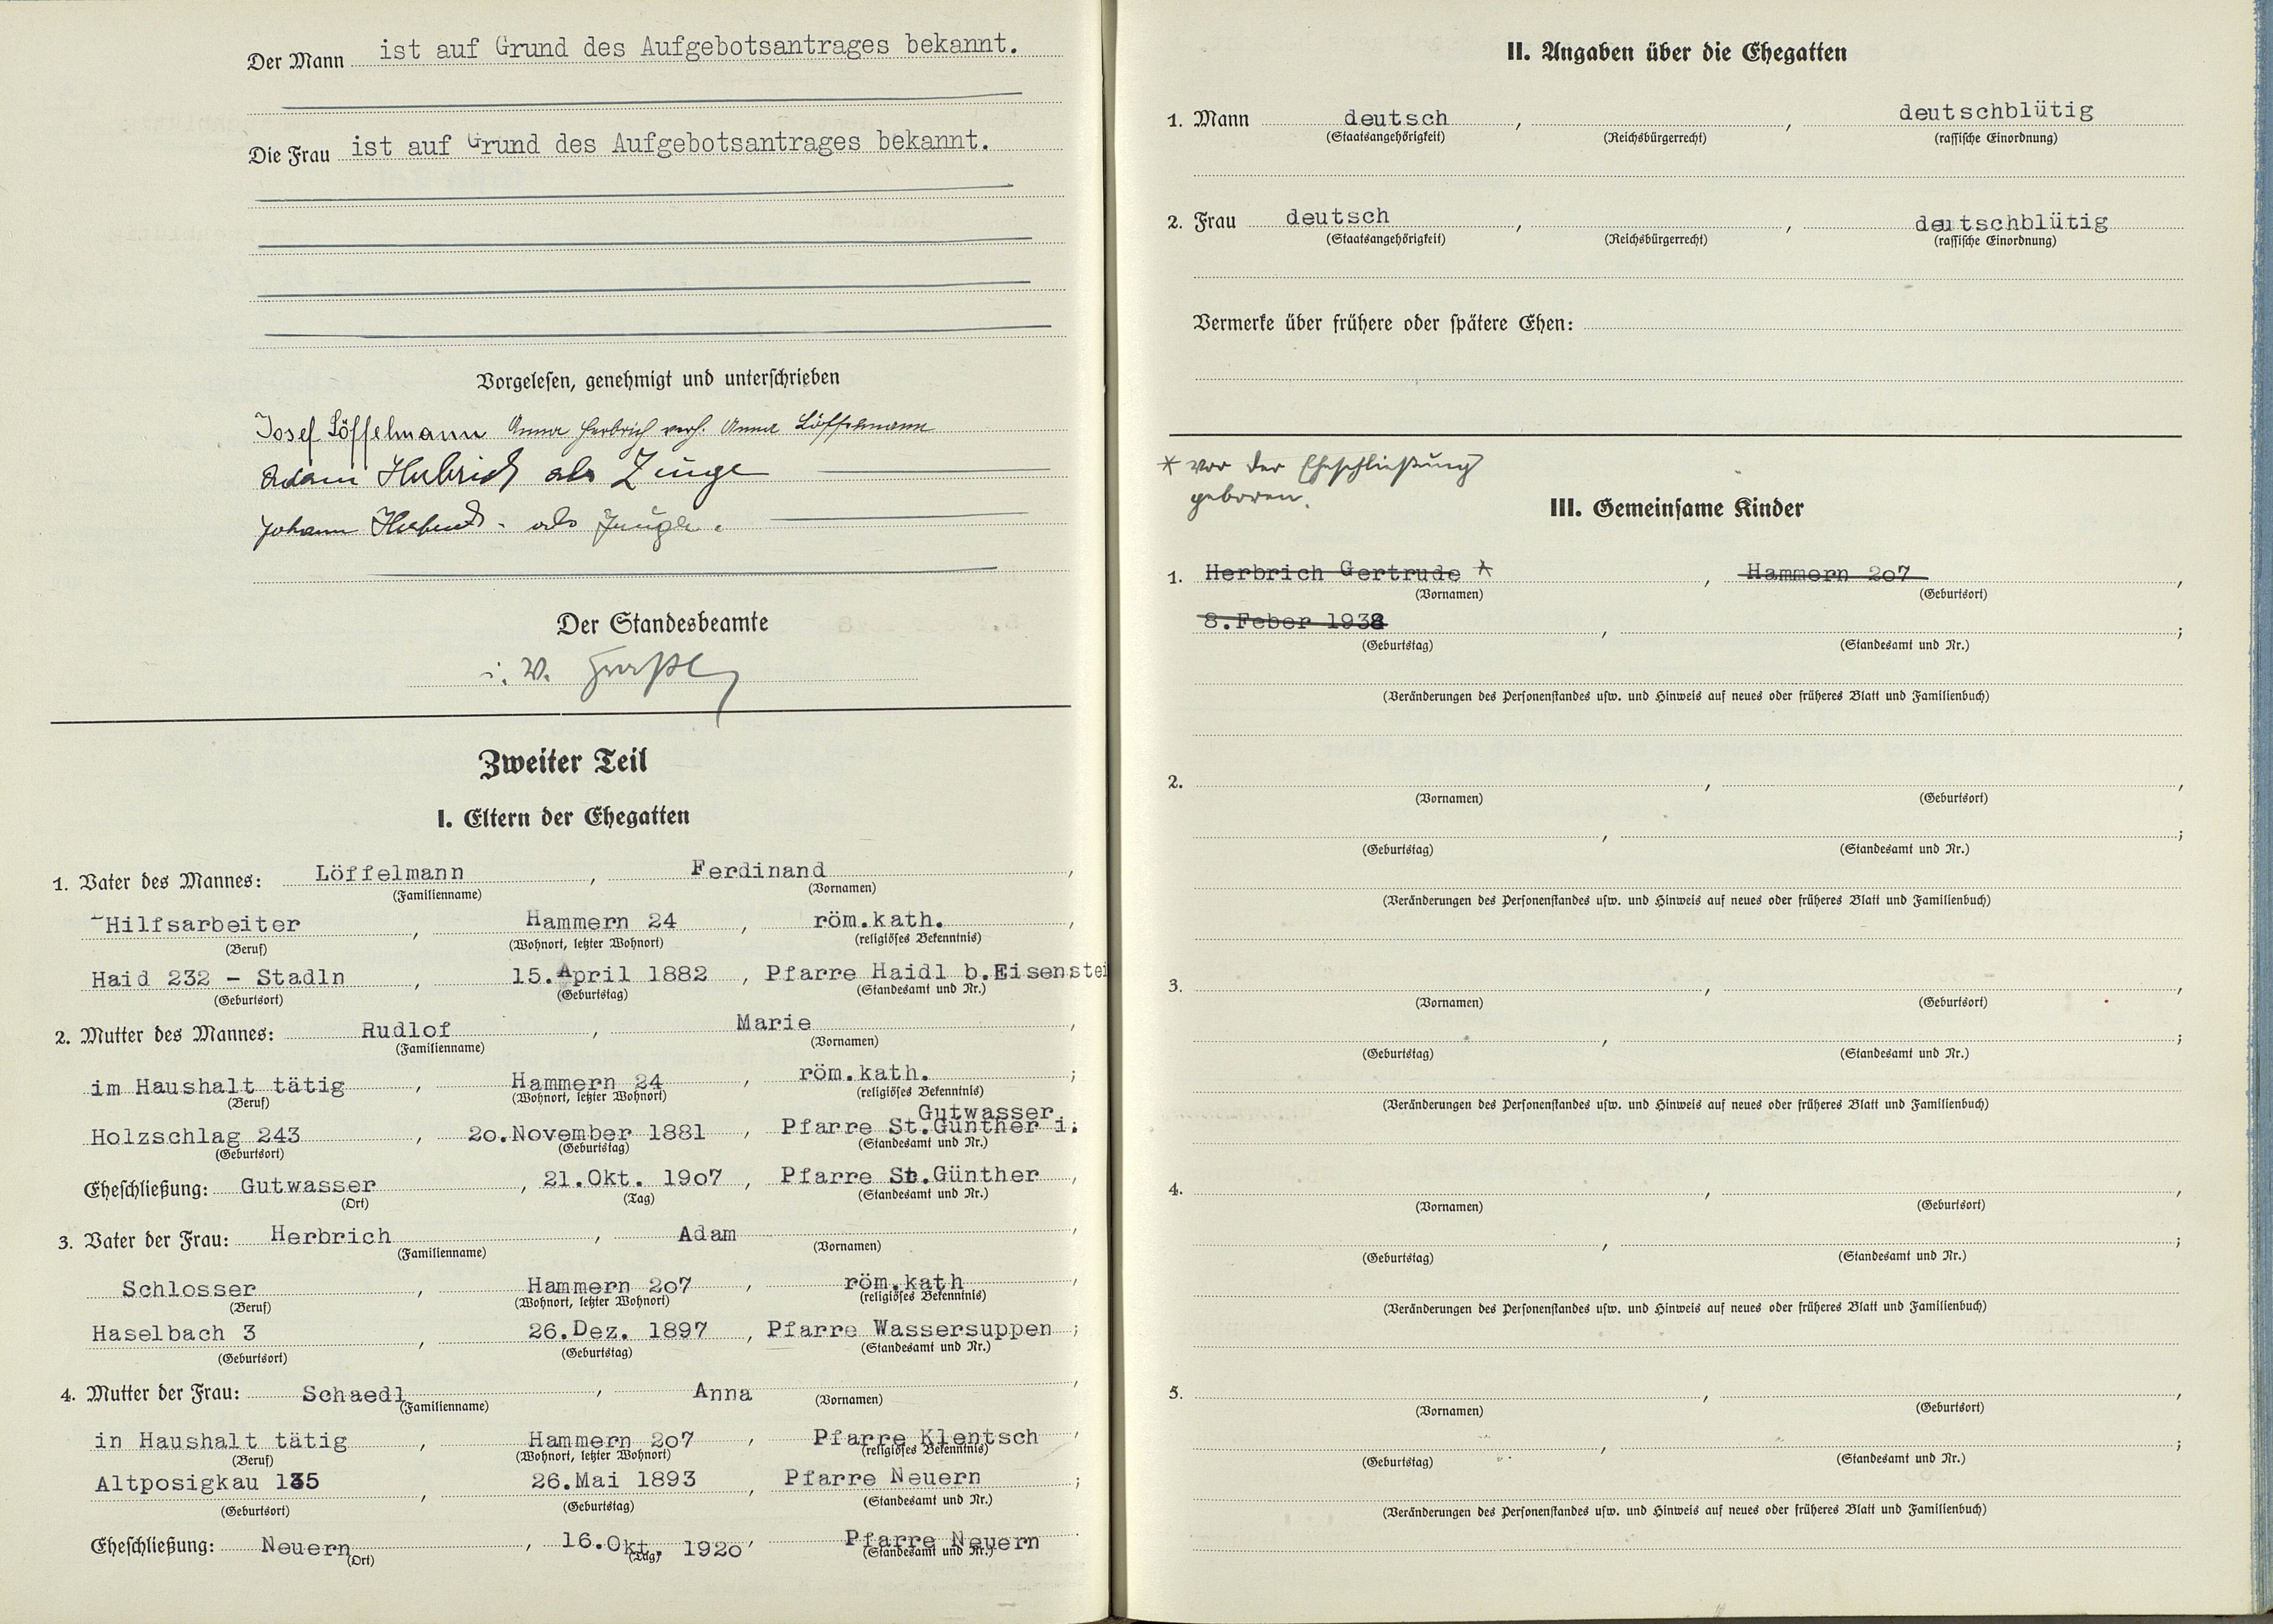 Der Mann ist auf Grund des Aufgebotsantrages bekannt.
Die Frau ist auf Grund des Aufgebotsantrages bekannt.
Vorgelesen, genehmigt und unterschrieben
Josef Löffelmann Anna Herbrich verh. Anna Löffelmann
Adam Herbrich als Zeuge
Johann als Zeuge.
Der Standesbeamte
i. V.
Zweiter Teil
I. Eltern der Ehegatten
1. Vater des Mannes: Löffelmann, Ferdinand,
(Familienname) (Vornamen)
Hilfsarbeiter, Hammern 24, röm.kath.,
(Beruf) (Wohnort, letzter Wohnort) (religiöses Bekenntnis)
Haid 232 - Stadln, 15.April 1882, Pfarre Haidl b.Eisenstei
(Geburtsort) (Geburtstag) (Standesamt und Nr.)
2. Mutter des Mannes: Rudlof, Marie,
(Familienname) (Vornamen)
im Haushalt tätig, Hammern 24, röm.kath.;
(Beruf) (Wohnort, letzter Wohnort) (religiöses Bekenntnis)
Gutwasser
Holzschlag 243, 2o.November 1881, Pfarre St.Günther i.;
(Geburtsort) (Geburtstag) (Standesamt und Nr.)
Eheschließung: Gutwasser, 21.Okt. 19o7, Pfarre St.Günther,
(Ort) (Tag) (Standesamt und Nr.)
3. Vater der Frau: Herbrich, Adam,
(Familienname) (Vornamen)
Schlosser, Hammern 2o7, röm.kath,
(Beruf) (Wohnort, letzter Wohnort) (religiöses Bekenntnis)
Haselbach 3, 26.Dez. 1897, Pfarre Wassersuppen;
(Geburtsort) (Geburtstag) (Standesamt und Nr.)
4. Mutter der Frau: Schaedl, Anna,
(Familienname) (Vornamen)
in Haushalt tätig, Hammern 2o7, Pfarre Klentsch,
(Beruf) (Wohnort, letzter Wohnort) (religiöses Bekenntnis)
Altposigkau 135, 26.Mai 1893, Pfarre Neuern;
(Geburtsort) (Geburtstag) (Standesamt und Nr.)
Eheschließung: Neuern, 16.Okt. 192o, Pfarre Neuern
(Ort) (Tag) (Standesamt und Nr.)
II. Angaben über die Ehegatten
1. Mann deutsch, , deutschblütig
(Staatsangehörigkeit) (Reichsbürgerrecht) (rassische Einordnung)
2. Frau deutsch, , deutschblütig
(Staatsangehörigkeit) (Reichsbürgerrecht) (rassische Einordnung)
Vermerke über frühere oder spätere Ehen:
* vor der Eheschließung
geboren.
III. Gemeinsame Kinder
1. Herbrich Gertrude *, Hammern 2o7,
(Vornamen) (Geburtsort)
8.Feber 1938, ;
(Geburtstag) (Standesamt und Nr.)
(Veränderungen des Personenstandes usw. und Hinweis auf neues oder früheres Blatt und Familienbuch)
2. , ,
(Vornamen) (Geburtsort)
, ;
(Geburtstag) (Standesamt und Nr.)
(Veränderungen des Personenstandes usw. und Hinweis auf neues oder früheres Blatt und Familienbuch)
3. , ,
(Vornamen) (Geburtsort)
, ;
(Geburtstag) (Standesamt und Nr.)
(Veränderungen des Personenstandes usw. und Hinweis auf neues oder früheres Blatt und Familienbuch)
4. , ,
(Vornamen) (Geburtsort)
, ;
(Geburtstag) (Standesamt und Nr.)
(Veränderungen des Personenstandes usw. und Hinweis auf neues oder früheres Blatt und Familienbuch)
5. , ,
(Vornamen) (Geburtsort)
, ;
(Geburtstag) (Standesamt und Nr.)
(Veränderungen des Personenstandes usw. und Hinweis auf neues oder früheres Blatt und Familienbuch)